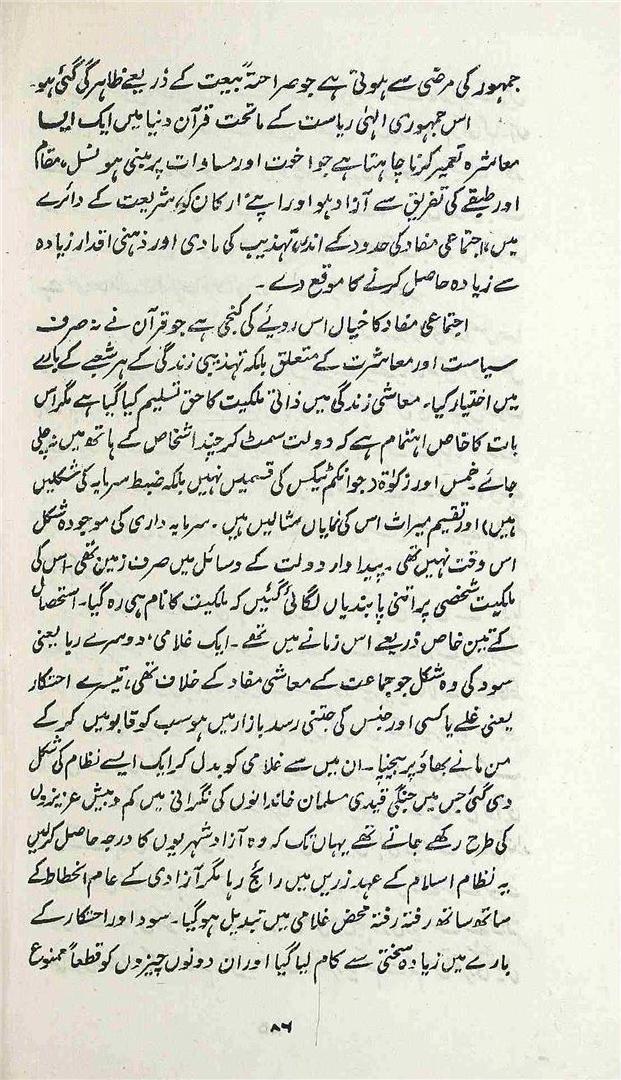 جمہور کی مرضی سے ہوتی ہے جو صراحتہً بیعت کے ذریعے ظاہر کی گئی ہو۔
اس جمہوری الہٰی ریاست کے ماتحت قرآن دنیا میں ایک ایسا
معاشرہ تعمیر کرنا چاہتا ہے جو اخوت اور مساوات پر مبنی ہو نسل، مقام
اور طبقے کی تفریق سے آزاد ہو اور اپنے ارکان کو، شریعت کے دائرے
میں، اجتماعی مفاد کی حدود کے اندر، تہذیب کی مادی اور ذہنی اقدار زیادہ
سے زیادہ حاصل کرنے کا موقع دے۔
اجتماعی مفاد کا خیال اس رویے کی کنجی ہے جو قرآن نے نہ صرف
سیاست اور معاشرت کے متعلق بلکہ تہذیبی زندگی کے ہر شعبے کے بارے
میں اختیار کیا۔ معاشی زندگی میں ذاتی ملکیت کا حق تسلیم کیا گیا ہے مگر اس
بات کا خاص اہتمام ہے کہ دولت سمٹ کر چند اشخاص کے ہاتھ میں نہ چلی
جائے۔ خمس اور زکوٰۃ (جو انکم ٹیکس کی قسمیں نہیں بلکہ ضبط سرمایہ کی شکلیں
ہیں) اور تقسیم میراث اس کی نمایاں مثالیں ہیں۔ سرمایہ داری کی موجودہ شکل
اس وقت نہیں تھی۔ پیداوار دولت کے وسائل میں صرف زمین تھی۔ اس کی
ملکیت شخصی پر اتنی پابندیاں لگائی گئیں کہ ملکیت کا نام ہی رہ گیا۔ استحصال
کے تین خاص ذریعے اس زمانے میں تھے۔ ایک غلامی، دوسرے ربا یعنی
سود کی وہ شکل جو جماعت کے معاشی مفاد کے خلاف تھی، تیسرے احتکار
یعنی غلے یا کسی اور جنس کی جتنی رسد بازار میں ہو سب کو قابو میں کر کے
من مانے بھاؤ پر بیچنا۔ ان میں سے غلامی کو بدل کر ایک ایسے نظام کی شکل
دی گئی جس میں جنگی قیدی مسلمان خاندانوں کی نگرانی میں کم و بیش عزیزوں
کی طرح رکھے جاتے تھے یہاں تک کہ وہ آزاد شہریوں کا درجہ حاصل کرلیں
یہ نظام اسلام کے عہد زریں میں رائج رہا مگر آزادی کے عام انحطاط کے
ساتھ ساتھ رفتہ رفتہ محض غلامی میں تبدیل ہوگیا۔ سود اور احتکار کے
بارے میں زیادہ سختی سے کام لیا گیا اور ان دونوں چیزوں کو قطعاً ممنوع
۸۶